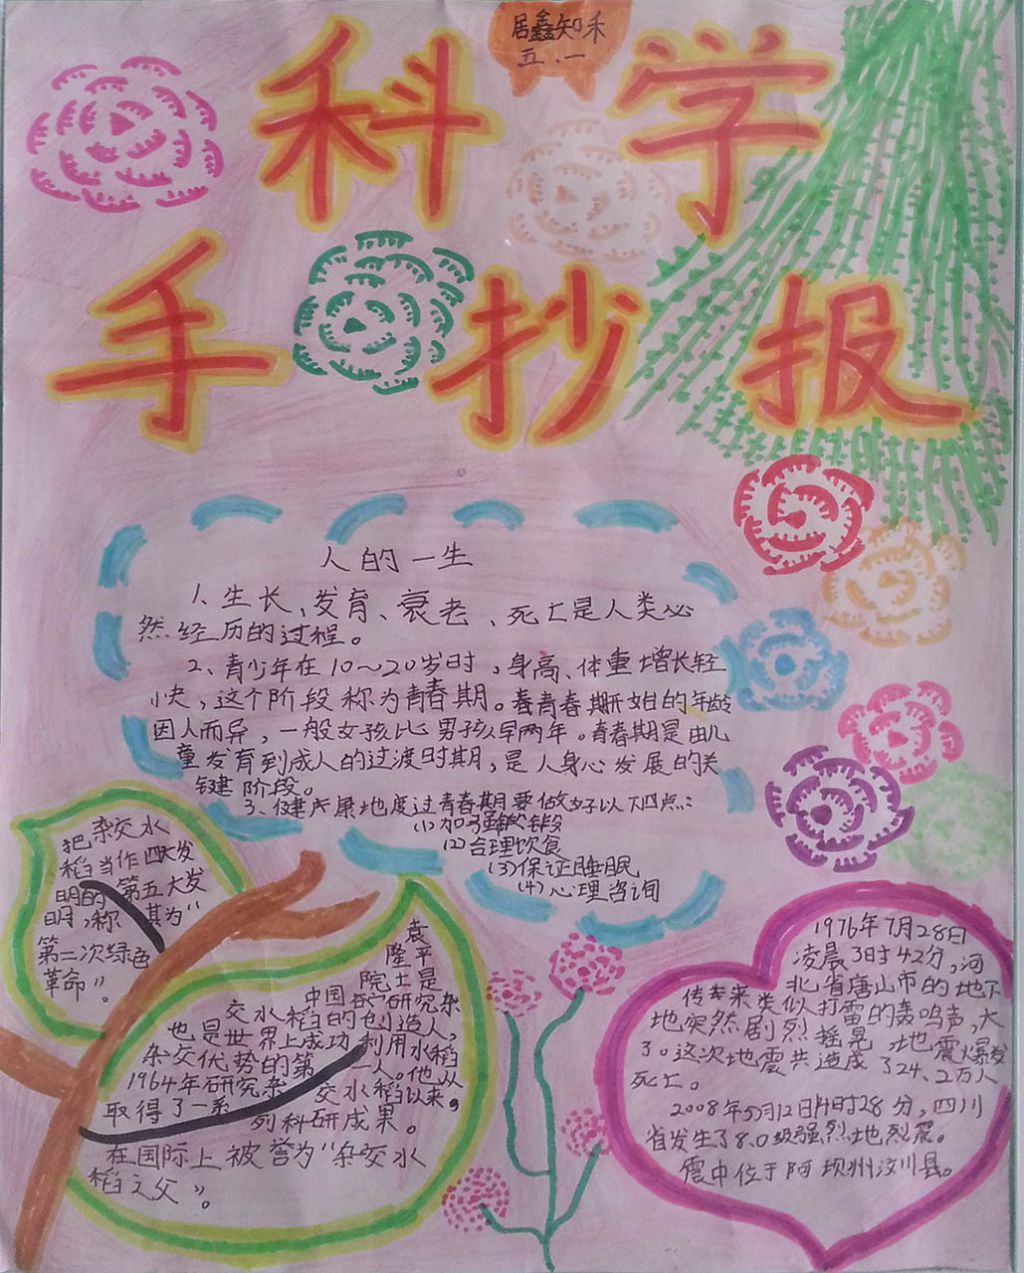 居鑫知禾
五.一
科学
手抄报
人的一生
1、生长、发育、衰老、死亡是人类必
然经历的过程。
2、青少年在10～20岁时，身高、体重增长轻
快，这个阶段称为青春期。春青春期开始的年龄
因人而异，一般女孩比男孩早两年。青春期是由儿
童发育到成人的过渡时期，是人身心发展的关
键阶段。
3、健康地度过青春期要做好以下四点：
(1)加强锻段
(2)合理饮食
(3)保证睡眠
(4)心理咨询
把杂交水
稻当作四大发
明的第五大发
明，称其为“
第二次绿色
革命”。
袁
隆平
院士是
中国研究杂
交水稻的创造人，
也是世界上成功利用水稻
杂交优势的第一人。他从
1964年研究杂交水稻以来，
取得了一系列科研成果。
在国际上被誉为“杂交水
稻之父”。
1976年7月28日
凌晨3时42分，河
北省唐山市的地下
传来类似打雷的轰鸣声，大
地突然剧烈摇晃，地震爆发
了。这次地震共造成了24、2万人
死亡。
2008年5月12日14时28分，四川
省发生了8.0级强烈地烈震。
震中位于阿坝州汶川县。